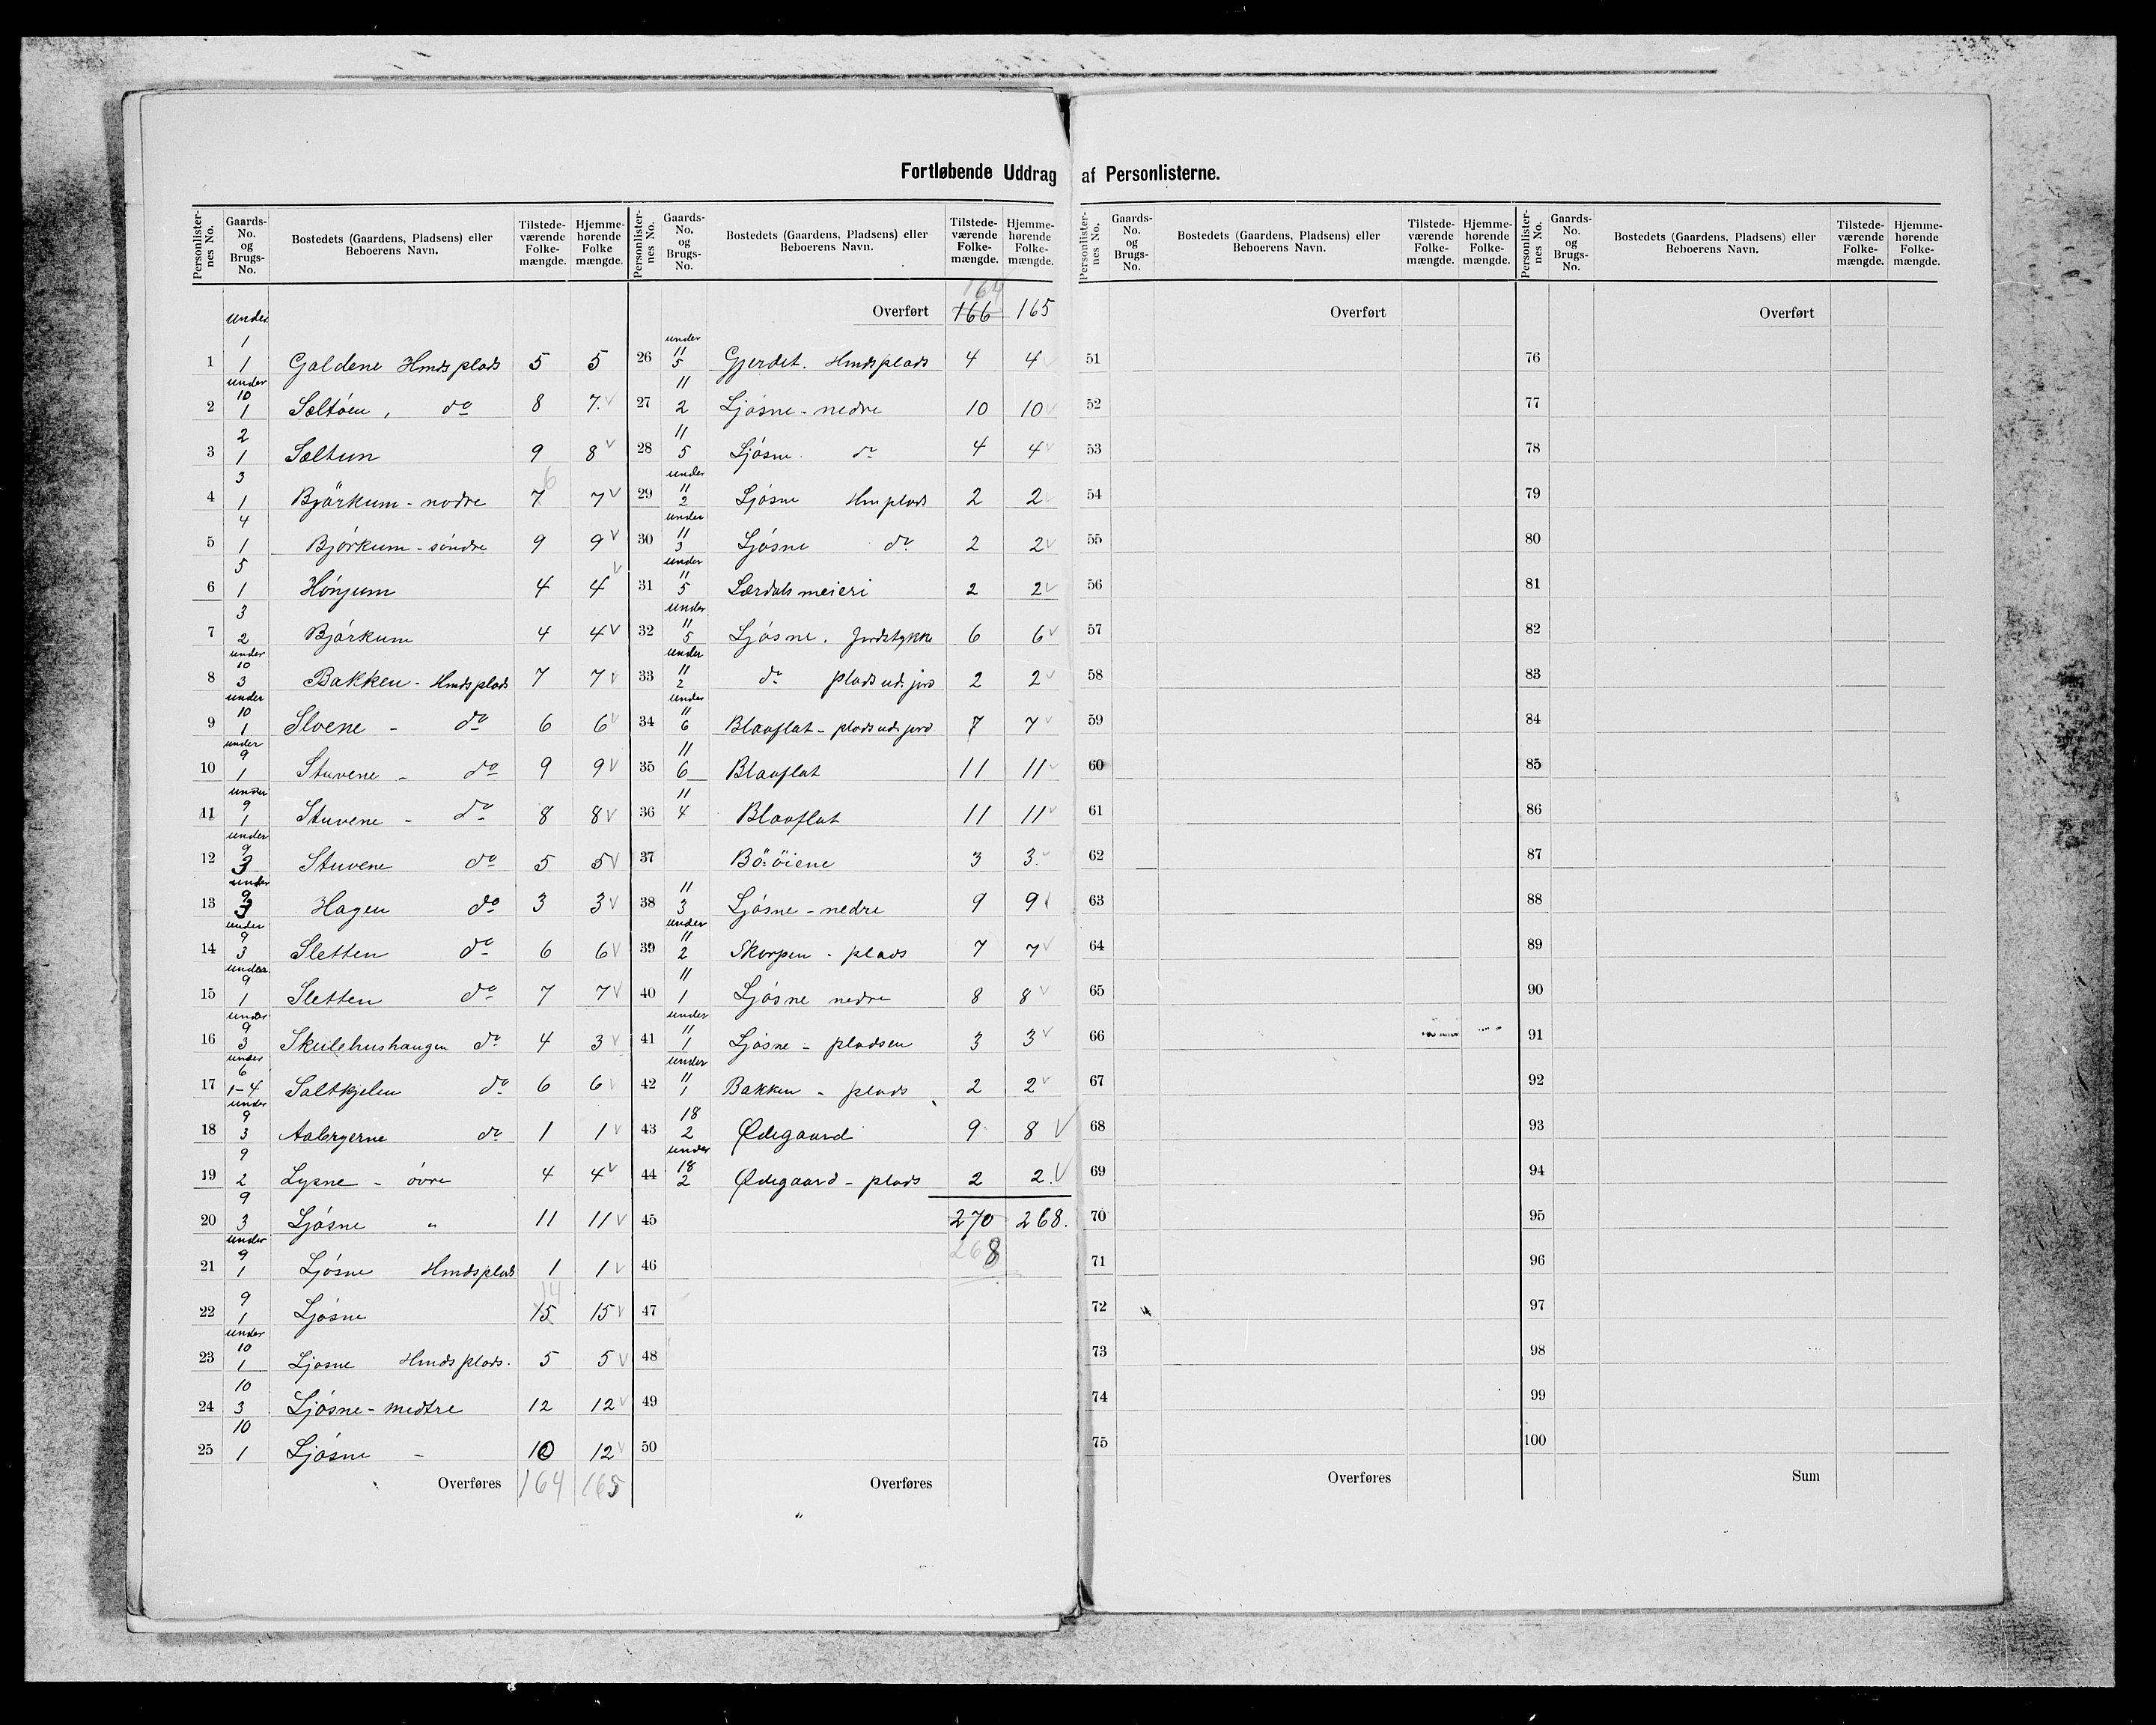 Fortløbende Uddrag af Personlisterne.
Personlister-nes No. | Gaards-No. og Brugs-No. | Bostedets (Gaardens, Pladsens) eller Beboerens Navn. | Tilstede-værende Folke-mængde. | Hjemme-hørende Folke mængde.
under 1
1 | 1 | Galdene Hmds plads | 5 | 5
2 | under 10 1 | Sæltøen, do | 8 | 7. v
3 | 2 1 | Sæltun | 9 | 8 v
4 | 3 1 | Bjärkum - nodre | 7 6 | 7 v
5 | 4 1 | Bjørkum - søndre | 9 | 9 v
6 | 5 1 | Hønjum | 4 | 4 v
7 | 3 2 | Bjørkum | 4 | 4 v
8 | under 10 3 | Bakken - Hmds plads | 7 | 7 v
9 | under 10 1 | Sloene - do | 6 | 6 v
10 | under 9 1 | Stuvene - do | 9 | 9 v
11 | under 9 1 | Stuvene - do | 8 | 8 v
12 | under 9 3 | Stuvene do | 5 | 5 v
13 | under 9 3 | Hagen do | 3 | 3 v
14 | under 9 3 | Sletten do | 6 | 6 v
15 | under 9 1 | Sletten do | 7 | 7 v
16 | under 9 3 | Skulehushaugen do | 4 | 3 v
17 | under 6 1-4 | Saltkjelen do | 6 | 6 v
18 | under 9 3 | Aabryerne do | 1 | 1 v
19 | 9 2 | Lysne - øvre | 4 | 4 v
20 | 9 3 | Ljøsne " | 11 | 11 v
21 | under 9 1 | Ljøsne Hmdsplads | 1 | 1 v
22 | 9 1 | Ljøsne | 15 14 | 15 v
23 | under 10 1 | Ljøsne Hmds plads. | 5 | 5 v
24 | 10 3 | Ljøsne - medtre | 12 | 12 v
25 | 10 1 | Ljøsne - | 10 | 12 v
Overføres | 164 | 165
Personlister-nes No. | Gaards-No. og Brugs-No. | Bostedets (Gaardens, Pladsens) eller Beboerens Navn. | Tilstede-værende Folke-mængde. | Hjemme-hørende Folke-mængde.
Overført | 166 164 | 165
26 | under 11 5 | Gjerdet. Hmdsplads | 4 | 4
27 | 11 2 | Ljøsne - nedre | 10 | 10 v
28 | 11 5 | Ljøsne. do | 4 | 4 v
29 | under 11 2 | Ljøsne Hmplads | 2 | 2 v
30 | under 11 3 | Ljøsne do | 2 | 2 v
31 | under 11 5 | Lærdals meieri | 2 | 2 v
32 | under 11 5 | Ljøsne. Jordstykke | 6 | 6 v
33 | under 11 2 | do plads ud. jord | 2 | 2 v
34 | under 11 6 | Blaaflat - plads ud. jord | 7 | 7 v
35 | 11 6 | Blaaflat | 11 | 11 v
36 | 11 4 | Blaaflat | 11 | 11 v
37 | Bö-öiene | 3 | 3. v
38 | 11 3 | Ljøsne - nedre | 9 | 9 v
39 | under 11 2 | Skorpen - plads | 7 | 7 v
40 | 11 1 | Ljøsne nedre | 8 | 8 v
41 | under 11 1 | Ljøsne - pladsen | 3 | 3 v
42 | under 11 1 | Bakken - plads | 2 | 2 v
43 | 18 2 | Ødegaard | 9 | 8 V
44 | under 18 2 | Ødegaard - plads | 2 | 2. V
45 | 270 | 268.
268
46
47
48
49
50
Overføres
Personlister-nes No. | Gaards-No. og Brugs-No. | Bostedets (Gaardens, Pladsens) eller Beboerens Navn. | Tilstede-værende Folke-mængde. | Hjemme-hørende Folke-mængde.
Overført
51
52
53
54
55
56
57
58
59
60
61
62
63
64
65
66
67
68
69
70
71
72
73
74
75
Overføres
Personlister-nes No. | Gaards-No. og Brugs-No. | Bostedets (Gaardens, Pladsens) eller Beboerens Navn. | Tilstede-værende Folke-mængde. | Hjemme-hørende Folke-mængde.
Overført
76
77
78
79
80
81
82
83
84
85
86
87
88
89
90
91
92
93
94
95
96
97
98
99
100
Sum